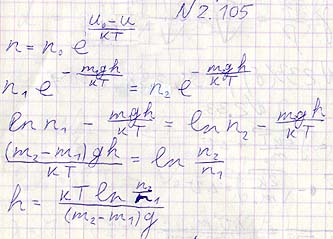 N 2.105
n = n₀ e^{(u₀-u)/кT}
n₁ e^{-mgh/кT} = n₂ e^{-mgh/кT}
ln n₁ - mgh/кT = ln n₂ - mgh/кT
(m₂-m₁)gh/кT = ln n₂/n₁
h = кT ln n₂/n₁ / (m₂-m₁)g